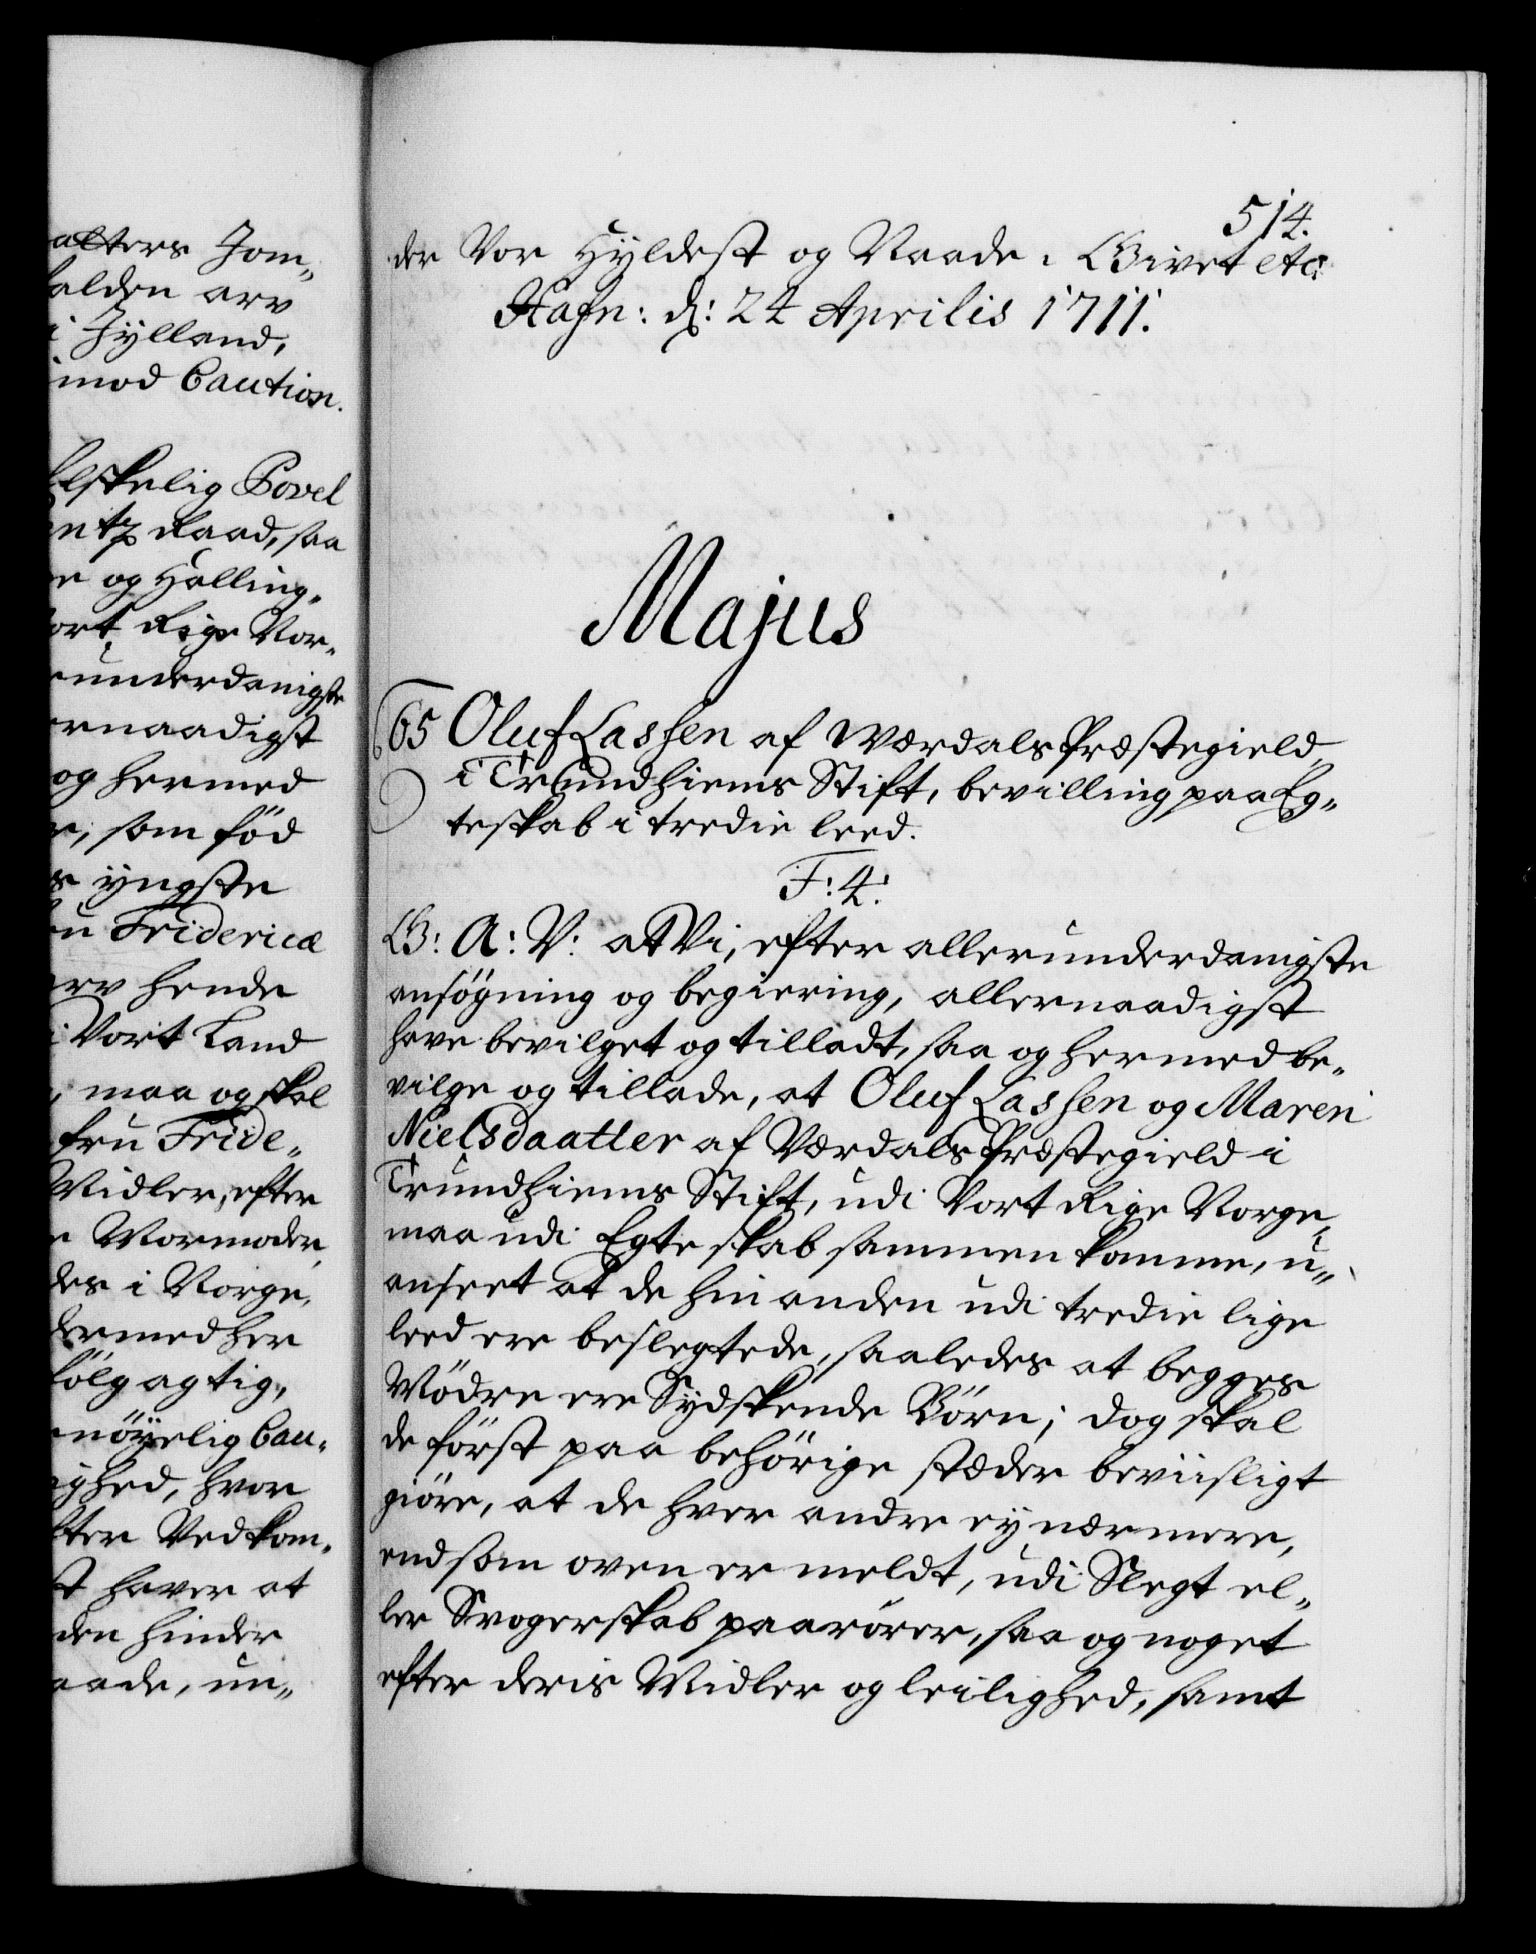 alters Jom„
falden arv
i Jylland,
imod Caution.
Elskelig Povel
entz Raad, saa
re og Halling„
ort Rige Nor„
runderdanigste
ernaadigst
og hermed
r, som fød
s yngste
ru Fridericæ
arv hende
i Vort Land
, maa og skal
fru Fride„
Midler, efter
e Mormoder
des i Norge,
dermed her
følgagtig,
nöyelig Cau„
ighed, hvor
fter Vedkom„
st haver at
den hinder
aade, un„
514.
der Vor Hyldest og Naade. Givet etc
Hafn: d: 24 Aprilis 1711.
Majus
65 Oluf Lassen af Værdals Præstegield
i Trundhiems Stift, bevilling paa Eg„
teskab i tredie leed.
F: 4.
G: A: V: at Vi, efter allerunderdanigste
ansøgning og begiering, allernaadigst
have bevilget og tilladt, saa og hermed be„
vilge og tillade, at Oluf Lassen og Maren
Nielsdaatter af Værdals Præstegield i
Trundhiems Stift, udi Vort Rige Norge,
maa udi Egteskab sammen komme, u„
anseet at de hin anden udi tredie lige
leed ere beslegtede, saaledes at begges
Mödre ere Sydskende Börn; dog skal
de först paa behörige stæder beviisligt
giöre, at de hver andre ey nærmere,
end som oven er meldt, udi Slegt el„
ler Svogerskab paarører, saa og noget
efter deris Midler og leilighed, samt